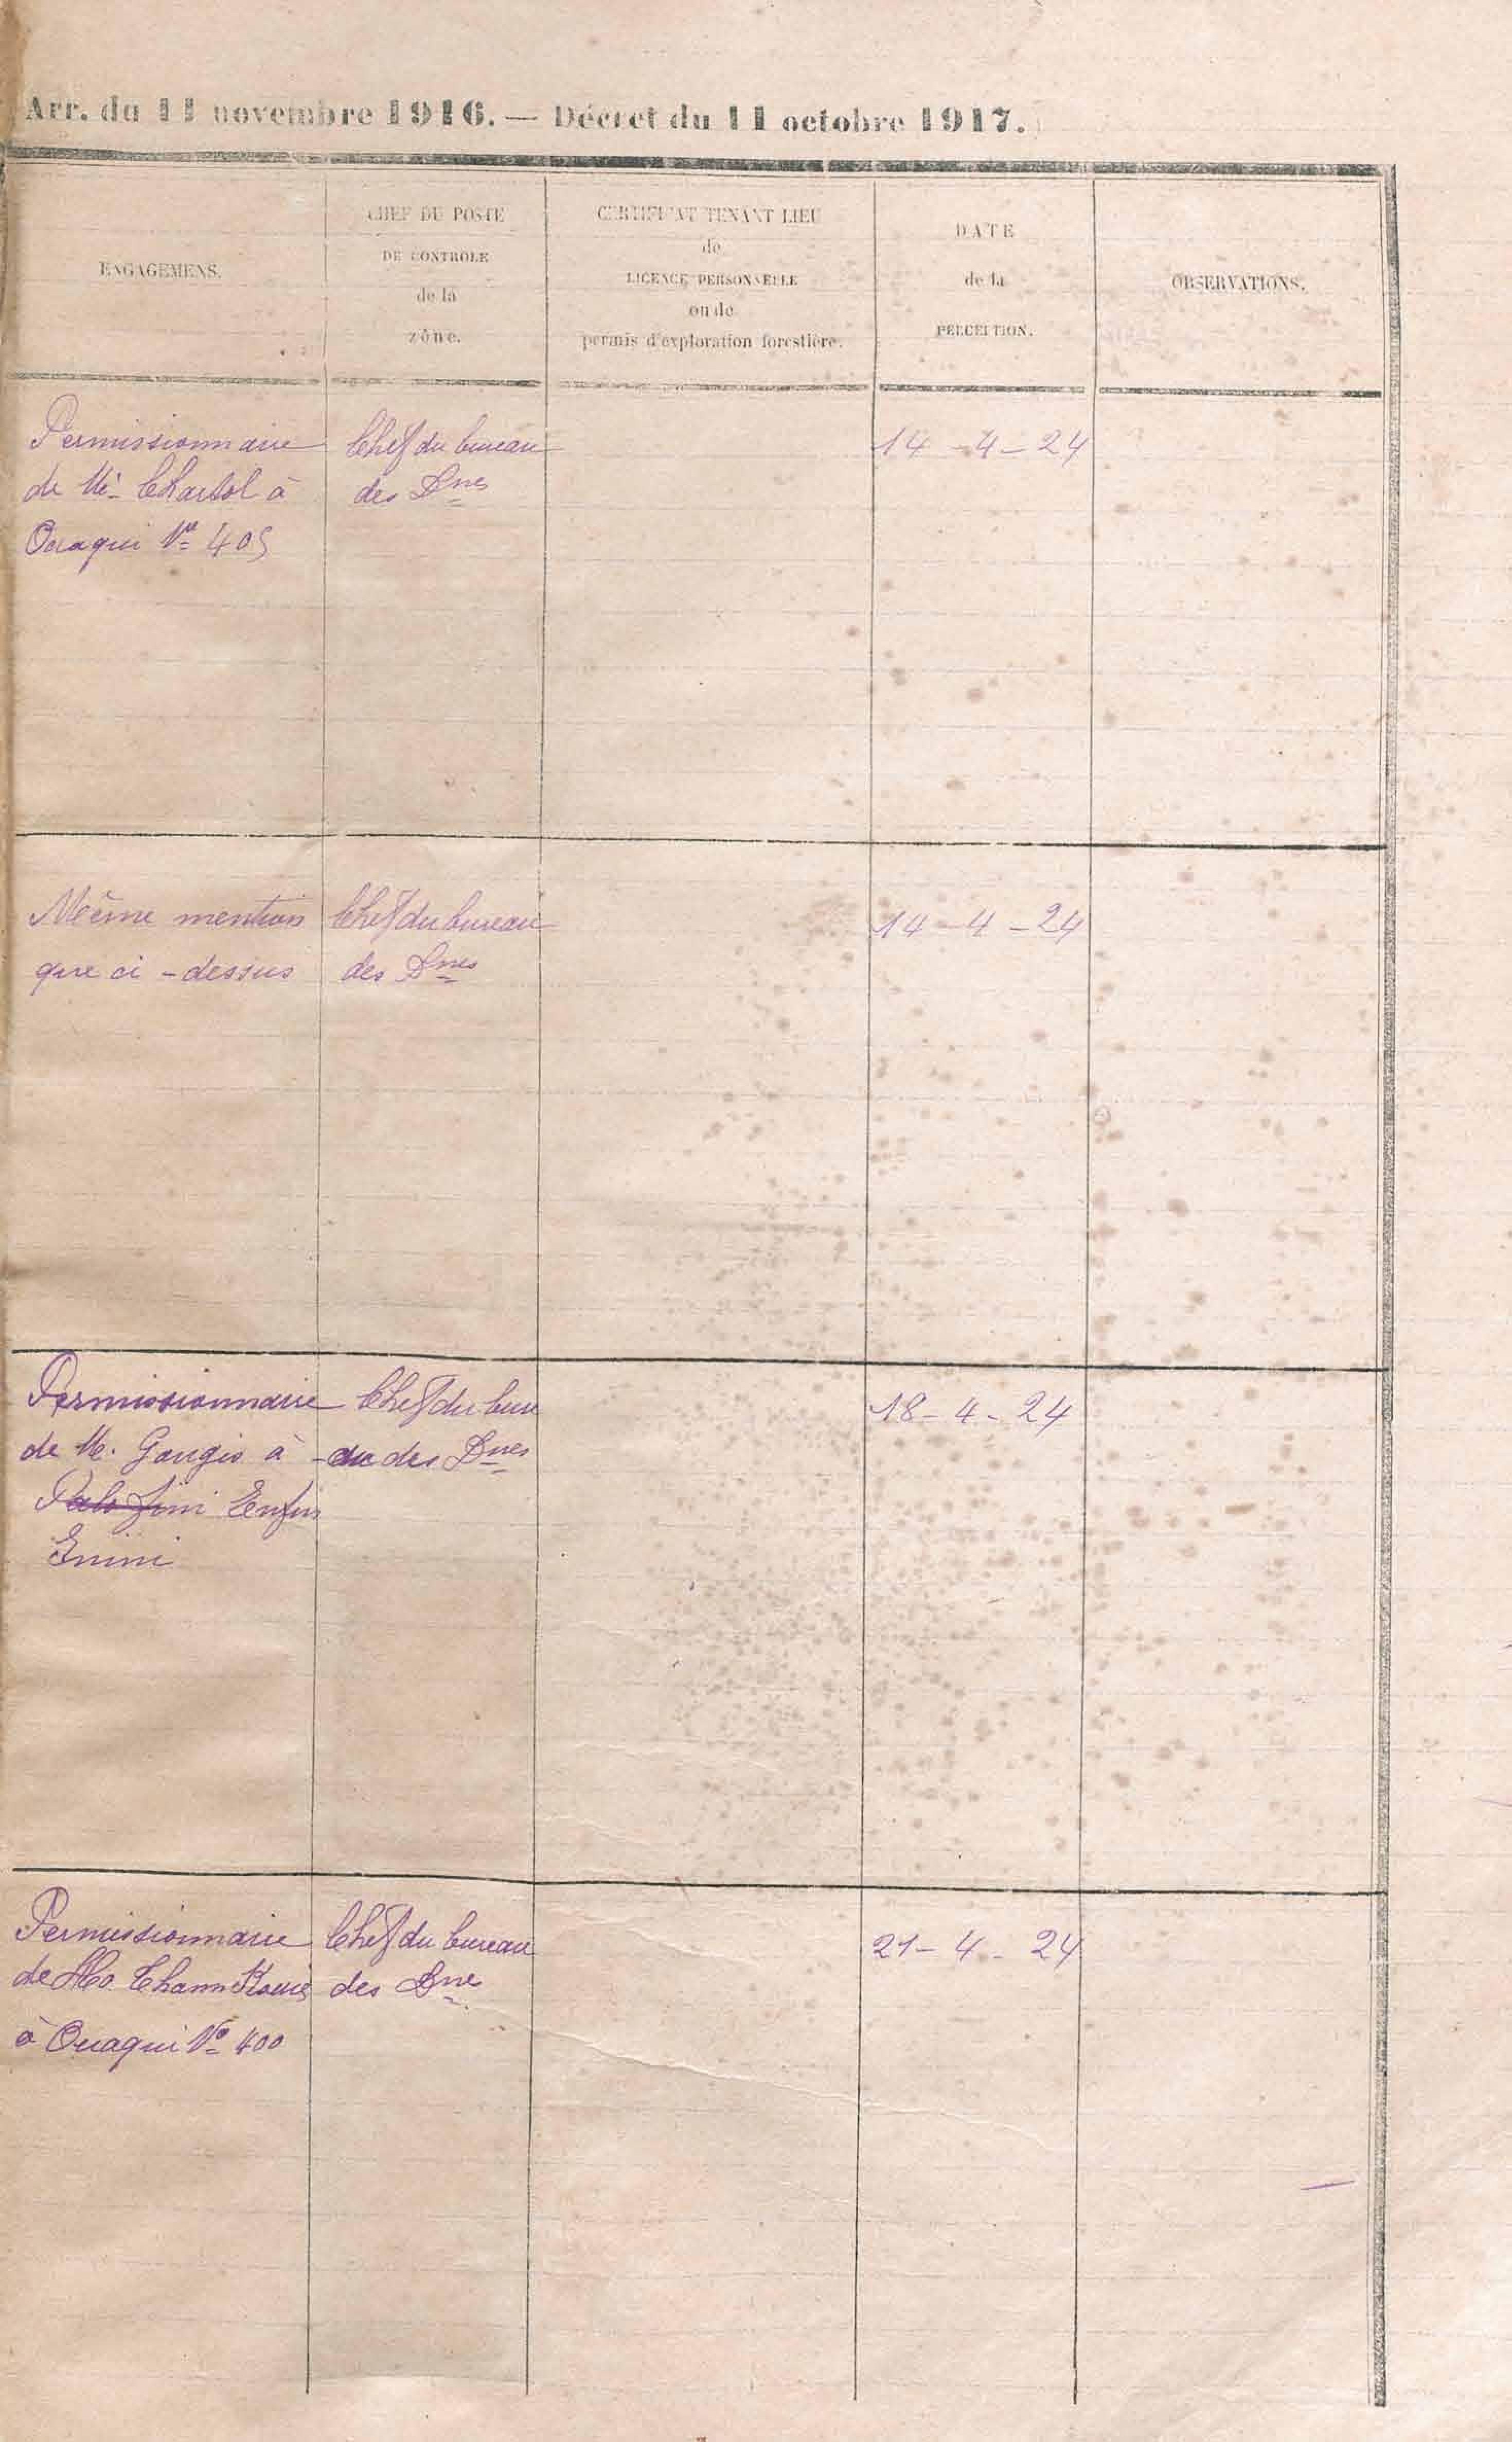 Arr. du 11 novembre 1916. — Décret du 11 octobre 1917.
ENGAGEMENS.
CHEF DU POSTE
DE CONTROLE
de la
zône.
CERTIFICAT TENANT LIEU
de
LICENCE PERSONNELLE
ou de
permis d'exploration forestière.
DATE
de la
PERCEPTION.
OBSERVATIONS.
Permissionnaire
de à
Ouaqui Nº 405
Chef du bureau
des Dnes
14-4-24
Même mention
que ci-dessus
Chef du bureau
des Dnes
14-4-24
Permissionnaire
de M. Gougis à
Enfin
Inini
Chef du bure
au des Dnes
18-4-24
Permissionnaire
de
à Ouaqui Nº 400
Chef du bureau
des Dnes
21-4-24